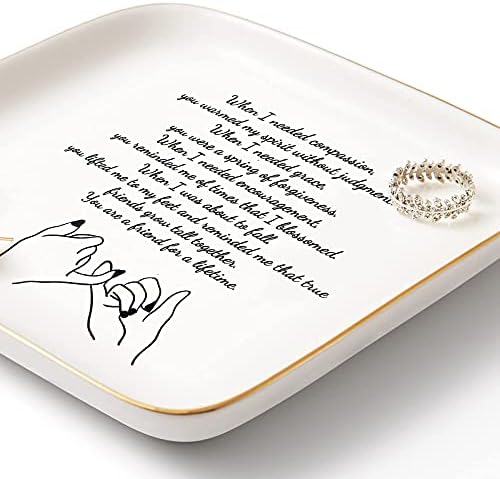 When I needed compassion,
you warmed my spirit without judgment.
When I needed grace,
you were a spring of forgiveness.
When I needed encouragement,
you reminded me of times that I blossomed.
When I was about to fall,
you lifted me to my feet and reminded me that true
friends grow tall together.
You are a friend for a lifetime.